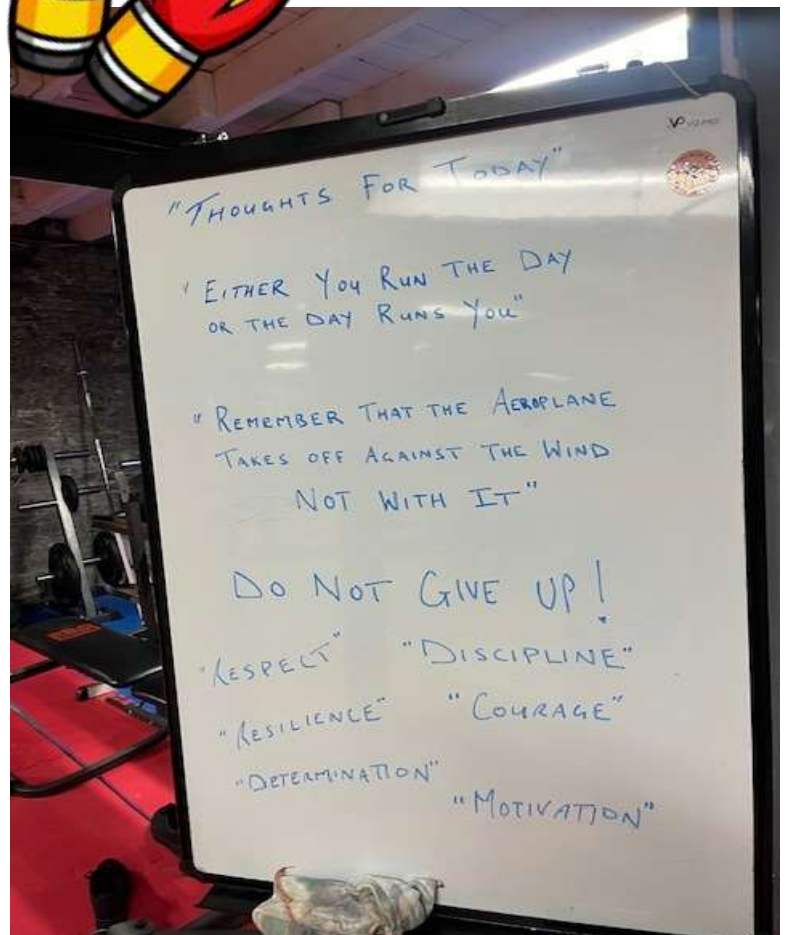 "THOUGHTS FOR TODAY"
"EITHER YOU RUN THE DAY
OR THE DAY RUNS YOU"
"REMEMBER THAT THE AEROPLANE
TAKES OFF AGAINST THE WIND
NOT WITH IT"
DO NOT GIVE UP!
"RESPECT" "DISCIPLINE"
"RESILIENCE" "COURAGE"
"DETERMINATION"
"MOTIVATION"